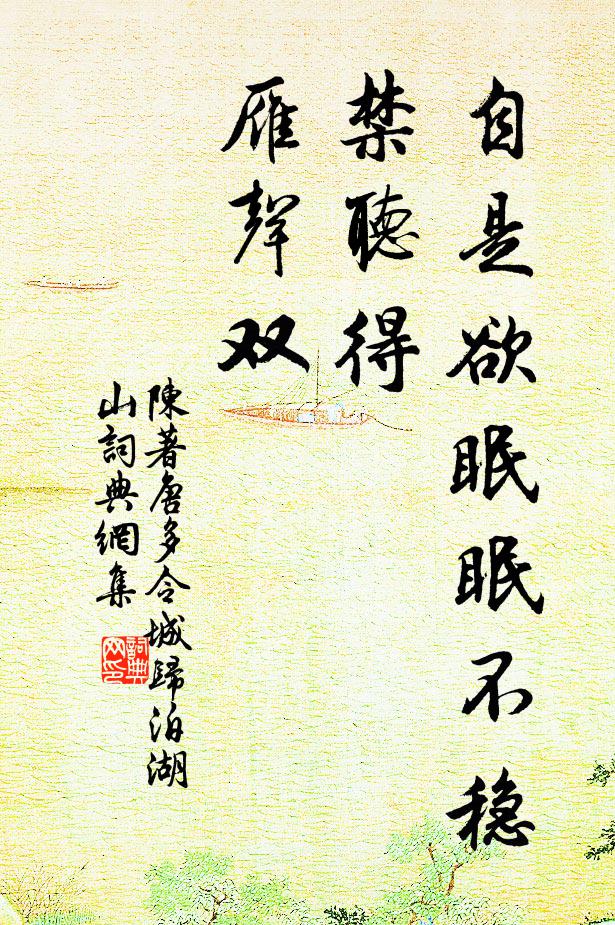 自是欲眠眠不稳
禁聽得
雁聲双
陳著唐多令城歸泊湖
山詞典網集
詞典
网印